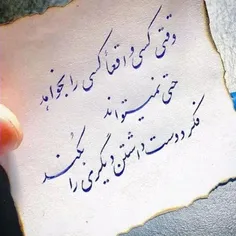 وقتی کسی واقعاً کسی را بخواهد
حتی نمیتواند
فکر دوست داشتن دیگری را بکند